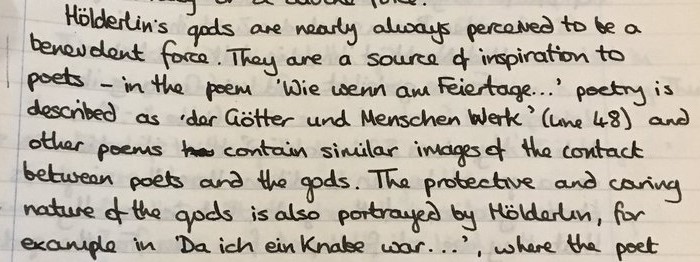 Hölderlin's gods are nearly always perceived to be a
benevolent force. They are a source of inspiration to
poets - in the poem 'Wie wenn am Feiertage...' poetry is
described as 'der Götter und Menschen Werk' (line 48) and
other poems contain similar images of the contact
between poets and the gods. The protective and caring
nature of the gods is also portrayed by Hölderlin, for
example in 'Da ich ein Knabe war...', where the poet